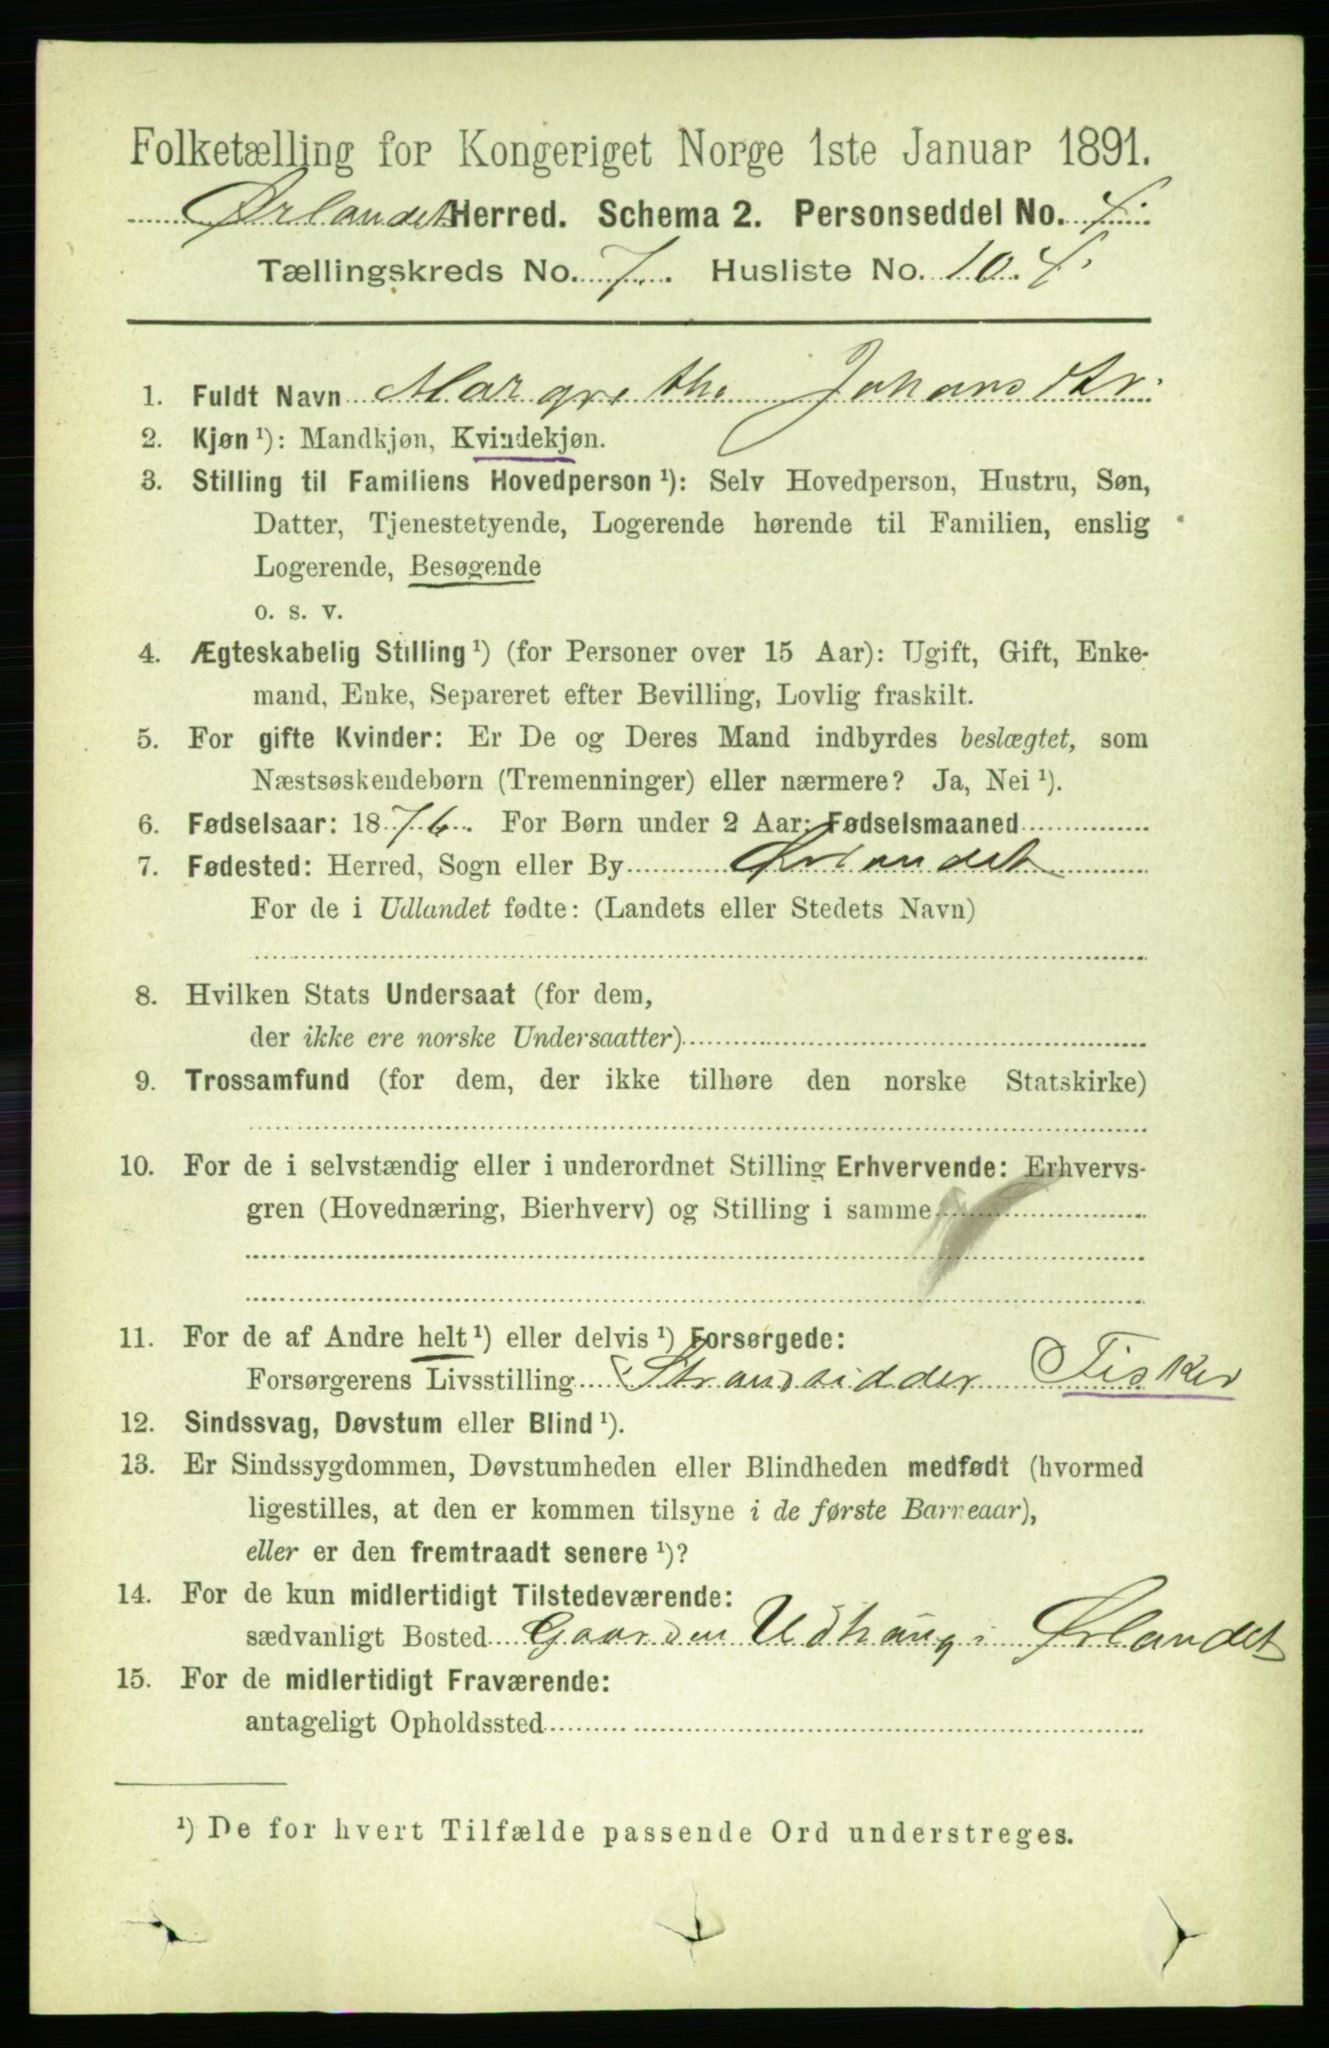 Folketælling for Kongeriget Norge 1ste Januar 1891.
Ørlandet Herred. Schema 2. Personseddel No. 4.
Tællingskreds No. 7. Husliste No. 104.
1. Fuldt Navn Margrethe Johansdtr.
2. Kjøn ¹): Mandkjøn, Kvindekjøn.
3. Stilling til Familiens Hovedperson ¹): Selv Hovedperson, Hustru, Søn,
Datter, Tjenestetyende, Logerende hørende til Familien, enslig
Logerende, Besøgende
o. s. v.
4. Ægteskabelig Stilling ¹) (for Personer over 15 Aar): Ugift, Gift, Enke-
mand, Enke, Separeret efter Bevilling, Lovlig fraskilt.
5. For gifte Kvinder: Er De og Deres Mand indbyrdes beslægtet, som
Næstsøskendebørn (Tremenninger) eller nærmere? Ja, Nei ¹).
6. Fødselsaar: 1876. For Børn under 2 Aar: Fødselsmaaned
7. Fødested: Herred, Sogn eller By Ørlandet
For de i Udlandet fødte: (Landets eller Stedets Navn)
8. Hvilken Stats Undersaat (for dem,
der ikke ere norske Undersaatter)
9. Trossamfund (for dem, der ikke tilhøre den norske Statskirke)
10. For de i selvstændig eller i underordnet Stilling Erhvervende: Erhvervs-
gren (Hovednæring, Bierhverv) og Stilling i samme
11. For de af Andre helt ¹) eller delvis ¹) Forsørgede:
Forsørgerens Livsstilling Strandsidder Fisker
12. Sindssvag, Døvstum eller Blind ¹).
13. Er Sindssygdommen, Døvstumheden eller Blindheden medfødt (hvormed
ligestilles, at den er kommen tilsyne i de første Barneaar),
eller er den fremtraadt senere ¹)?
14. For de kun midlertidigt Tilstedeværende:
sædvanligt Bosted Gaarden Udhaug i Ørlandet
15. For de midlertidigt Fraværende:
antageligt Opholdssted
¹) De for hvert Tilfælde passende Ord understreges.